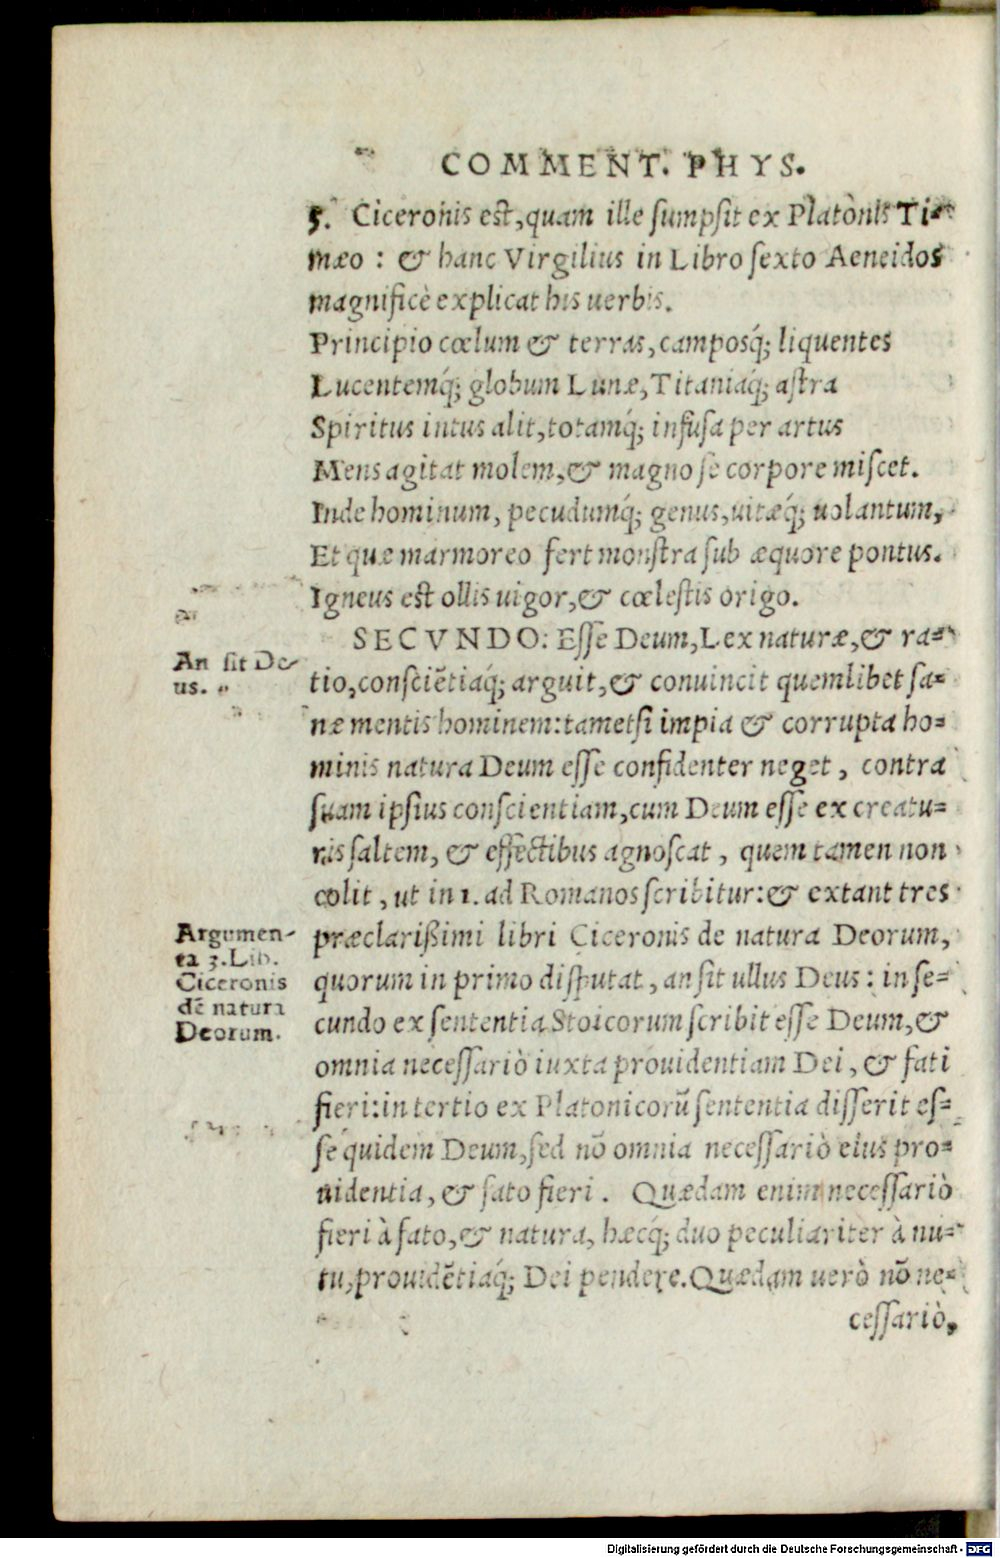 COMMENT. PHYS.
5. Ciceronis est, quam ille sumpsit ex Platonis Ti-
mæo : & hanc Virgilius in Libro sexto Aeneidos
magnificè explicat his uerbis.
Principio cœlum & terras, camposq́; liquentes
Lucentemq́; globum Lunæ, Titaniaq́; astra
Spiritus intus alit, totamq́; infusa per artus
Mens agitat molem, & magno se corpore miscet.
Inde hominum, pecudumq́; genus, uitæq́; uolantum,
Et quæ marmoreo fert monstra sub æquore pontus.
Igneus est ollis uigor, & cœlestis origo.
SECVNDO: Esse Deum, Lex naturæ, & ra-
An sit De-
us.
tio, consciẽtiaq́; arguit, & conuincit quemlibet sa-
næ mentis hominem: tametsi impia & corrupta ho-
minis natura Deum esse confidenter neget, contra
suam ipsius conscientiam, cum Deum esse ex creatu-
ris saltem, & effectibus agnoscat, quem tamen non
colit, ut in 1. ad Romanos scribitur: & extant tres
Argumen-
ta 3. Lib.
Ciceronis
dē natura
Deorum.
præclarißimi libri Ciceronis de natura Deorum,
quorum in primo disputat, an sit ullus Deus: in se-
cundo ex sententia Stoicorum scribit esse Deum, &
omnia necessariò iuxta prouidentiam Dei, & fati
fieri: in tertio ex Platonicorũ sententia disserit es-
se quidem Deum, sed nō omnia necessariò eius pro-
uidentia, & fato fieri. Quædam enim necessariò
fieri à fato, & natura, hæcq́; duo peculiariter à nu-
tu, prouidẽtiaq́; Dei pendere. Quædam uerò nō ne-
cessariò,
Digitalisierung gefördert durch die Deutsche Forschungsgemeinschaft - DFG